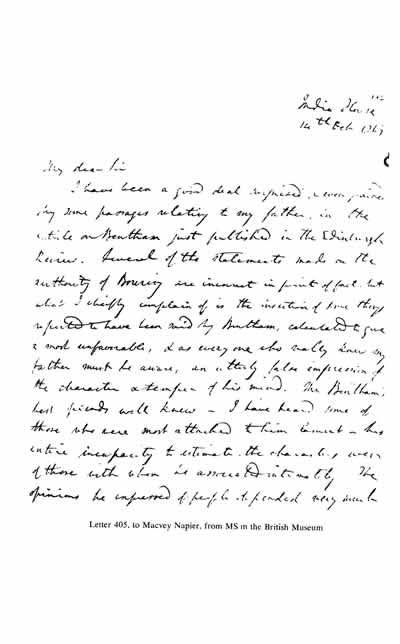 India House
14th Oct 1843
My dear Sir
I have been a good deal surprised & even pained
by some passages relating to my father, in the
article on Bentham just published in the Edinburgh
Review. Several of the statements made on the
authority of Bowring are incorrect in point of fact. but
what I chiefly complain of is the insertion of some things
reported to have been said by Bentham, calculated to give
a most unfavorable, & as every one who really knew my
father must be aware, an utterly false impression of
the character & temper of his mind. Mr Bentham's
best friends well knew – I have heard some of
those who were most attached to him lament – his
entire incapacity to estimate the characters even
of those with whom he associated intimately. The
opinions he expressed of people depended very much
Letter 405, to Macvey Napier, from MS in the British Museum